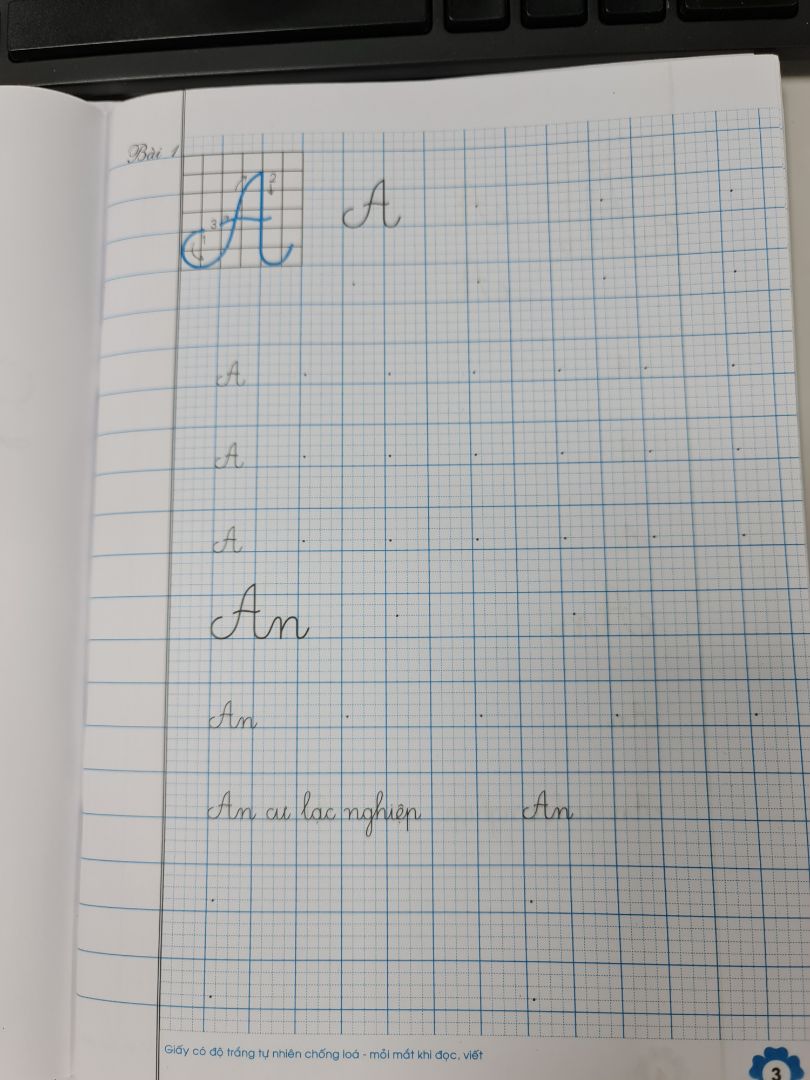 Bài 1
1 2 3 A
A
A
A
An
An
An cư lạc nghiệp An
Giấy có độ trắng tự nhiên chống loá - mỏi mắt khi đọc, viết
3